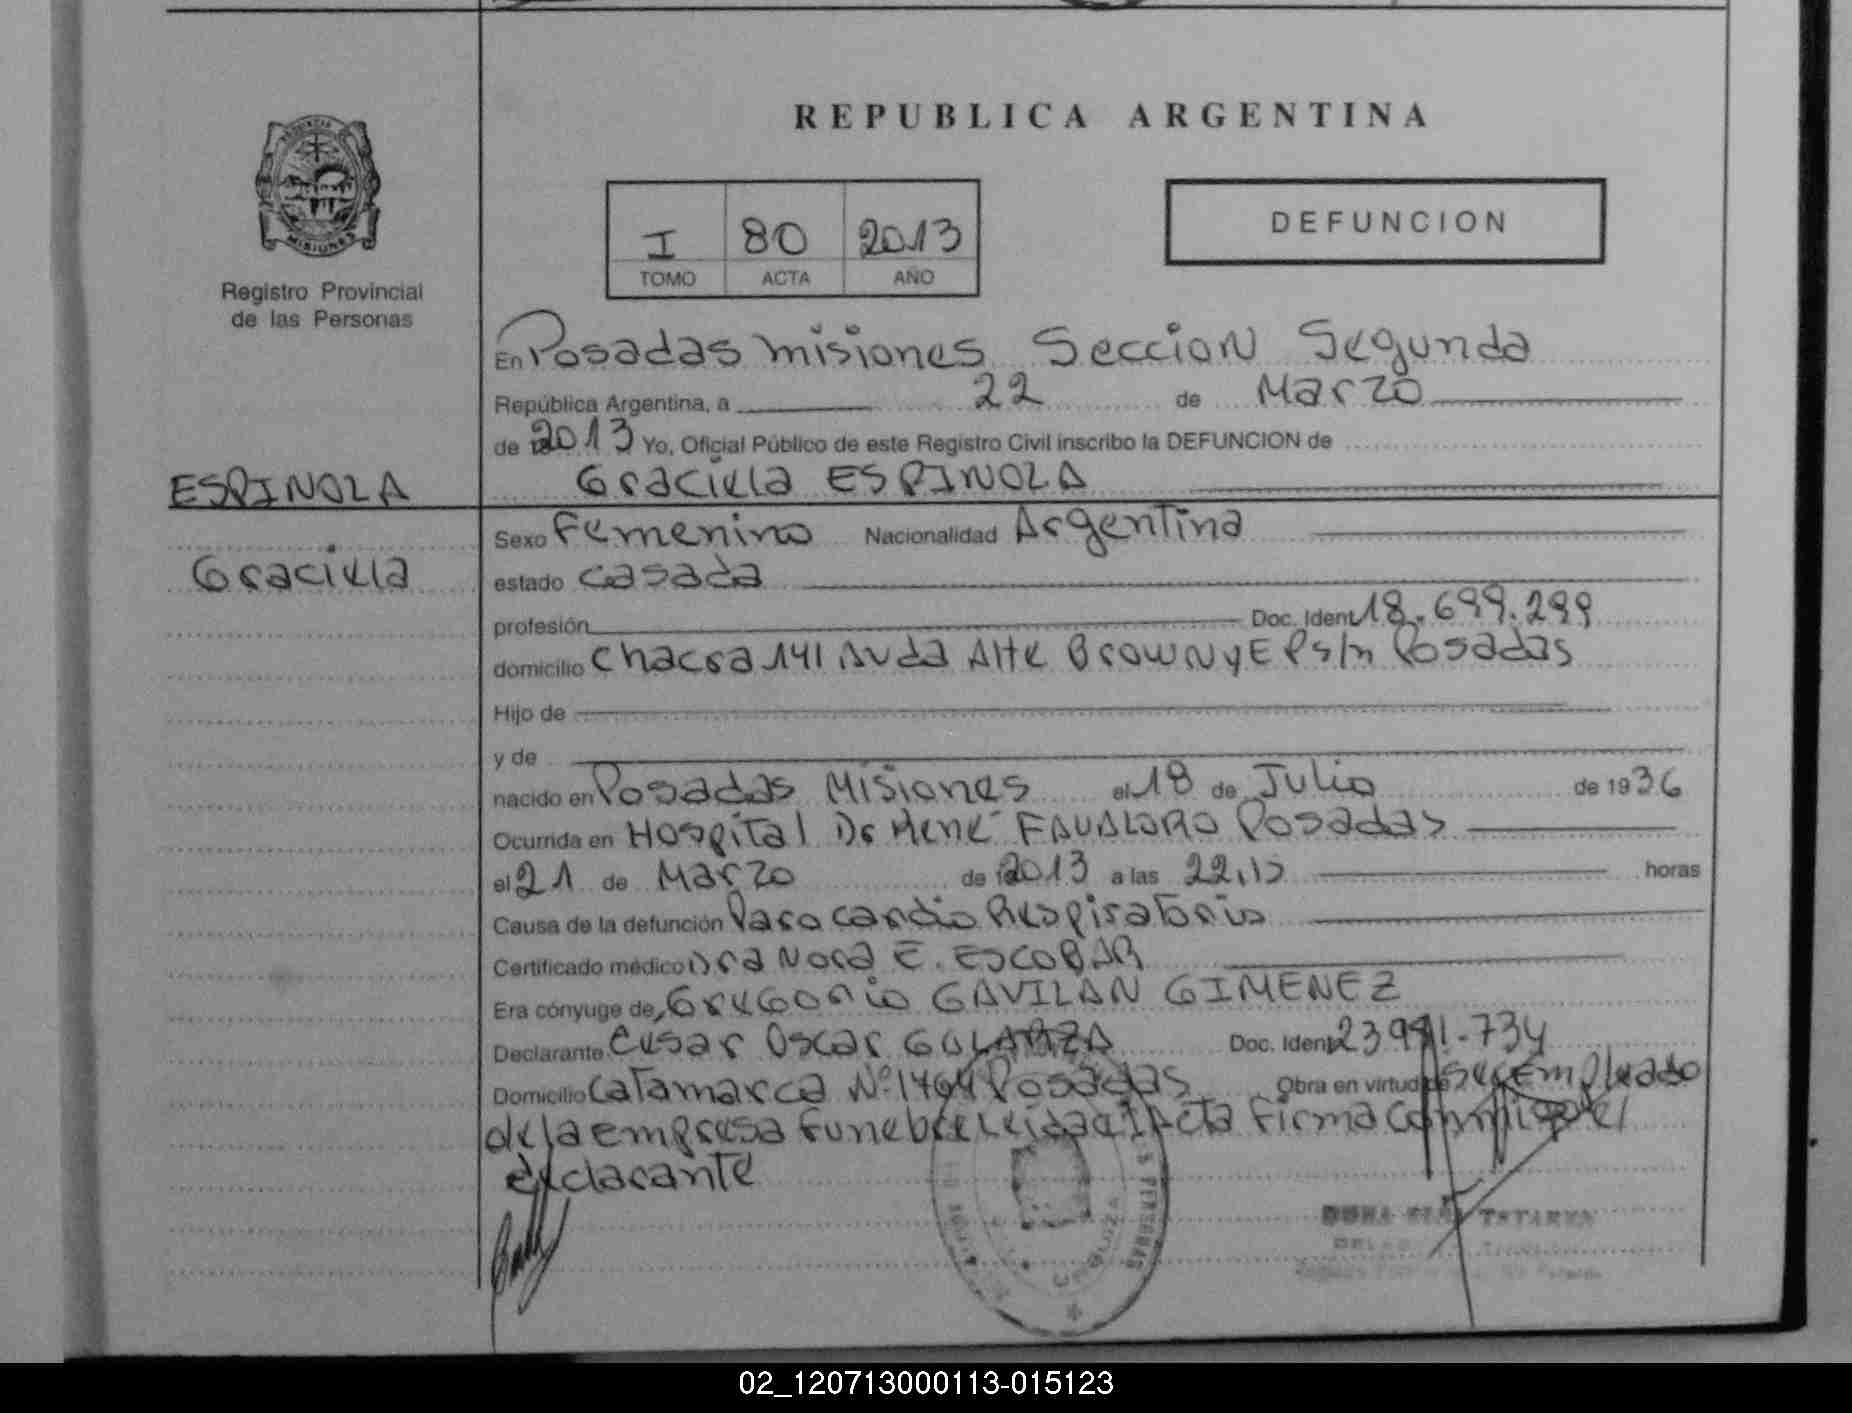 REPUBLICA ARGENTINA
PROVINCIA DE
MISIONES
Registro Provincial
de las Personas
I 80 2013
TOMO ACTA AÑO
DEFUNCION
En Posadas misiones Seccion Segunda
República Argentina, a 22 de Marzo
de 2013 Yo, Oficial Público de este Registro Civil inscribo la DEFUNCION de
ESPINOLA
Graciela ESPINOLA
Graciela
Sexo Femenino Nacionalidad Argentina
estado casada
profesión Doc. Ident 18.699.299
domicilio Chacra 141 Avda Alte Brown y E P s/n Posadas
Hijo de
y de
nacido en Posadas Misiones el 18 de Julio de 1936
Ocurrida en Hospital Dr Rene FAVALORO Posadas
el 21 de Marzo de 2013 a las 22,15 horas
Causa de la defunción Paro cardio Respiratorio
Certificado médico Dra Nora E. ESCOBAR
Era cónyuge de Gregorio GAVILAN GIMENEZ
Declarante Cesar Oscar GALARZA Doc. Ident 23 .734
Domicilio Catamarca Nº 1464 Posadas Obra en virtud de ser Empleado
de la empresa Funebre Leida el Acta Firma conmigo el
declarante
PERSONAS
02_120713000113-015123